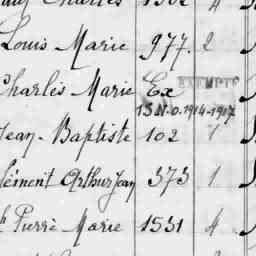 Charles 1302 4
Louis Marie 977. 2
Charles Marie Ex EXEMPTÉ
I.S.N.O. 1914-1917
Jean-Baptiste 102 1
Clément Arthur Jean 373 1
Pierre Marie 1531 4